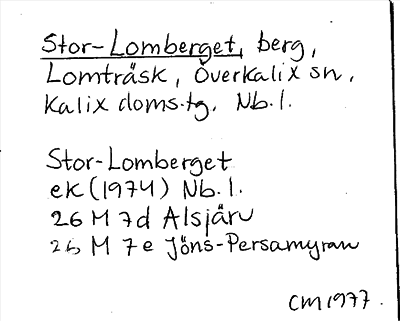 Stor-Lomberget, berg,
Lomträsk, Överkalix sn,
Kalix doms.tg. Nb.l.
Stor-Lomberget
ek (1974) Nb.l.
26 M 7d Alsjärv
26 M 7e Jöns-Persamyran
CM 1977.